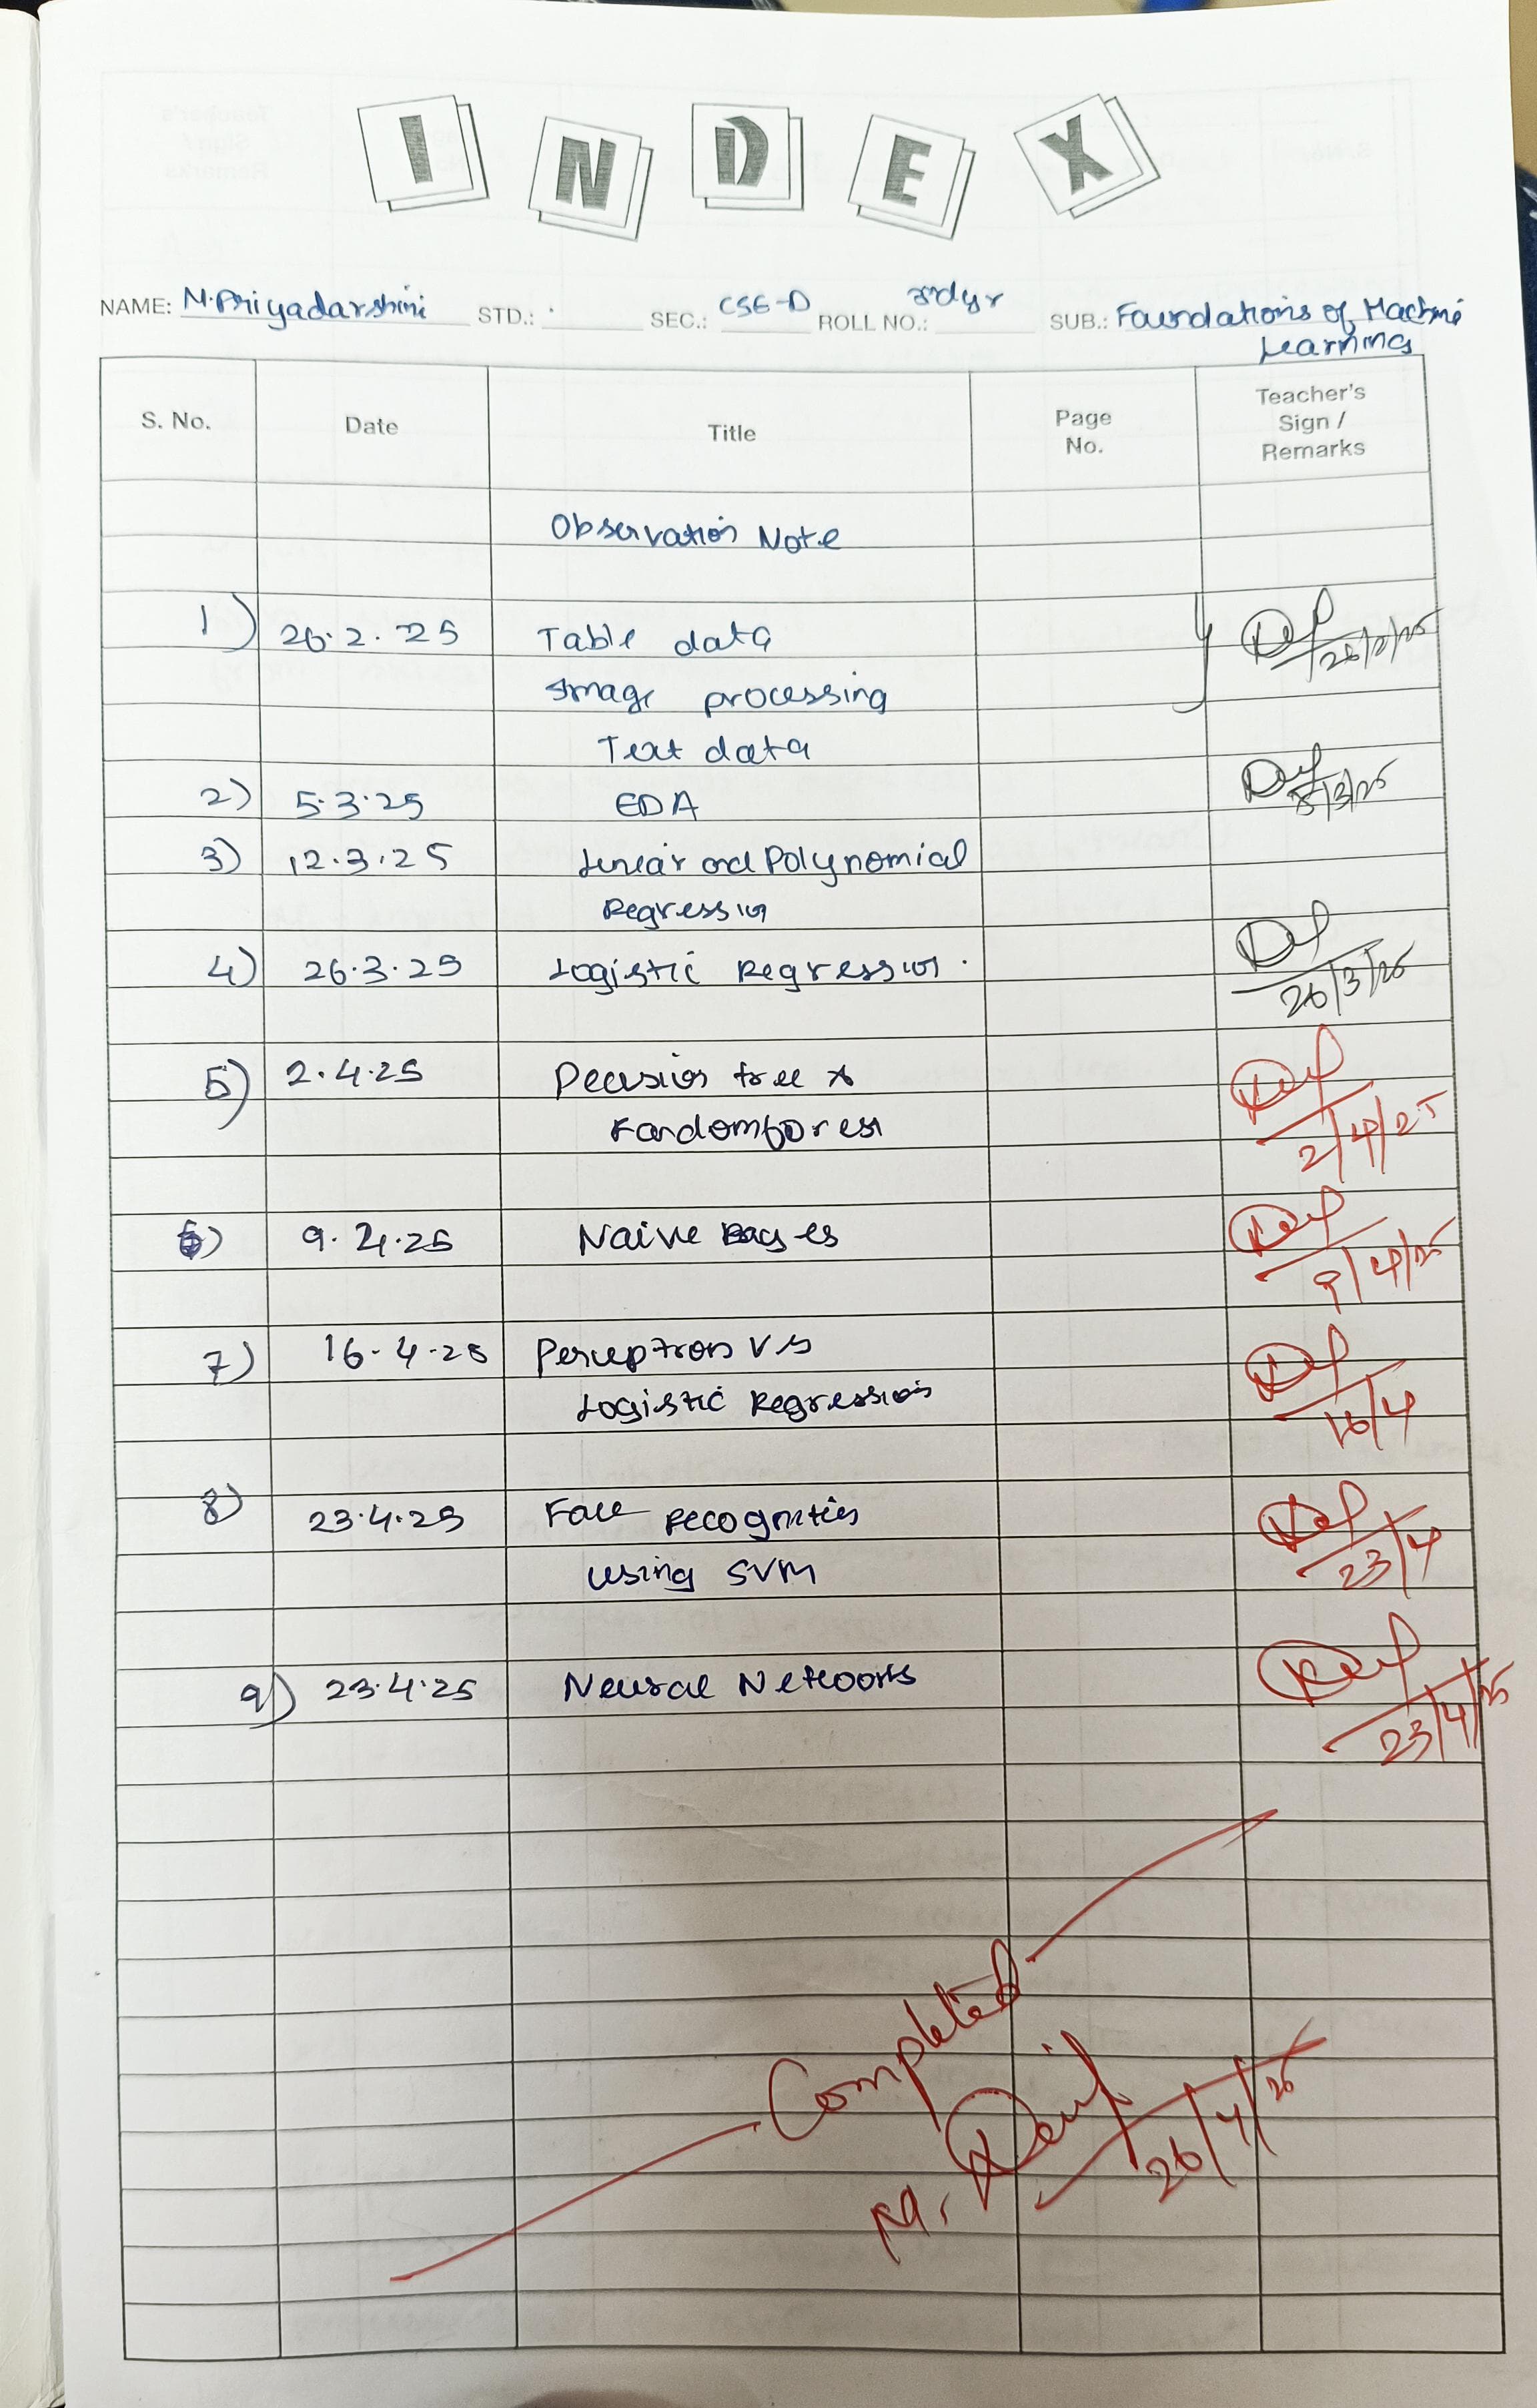 INDEX
NAME: M.Priyadarshini STD.: SEC.: CSE-D ROLL NO.: 3rd yr SUB.: Foundations of Machine Learning
S. No. Date Title Page No. Teacher's Sign / Remarks
Observation Note
1) 26.2.25 Table data
Image processing 26/2/25
Text data
2) 5.3.25 EDA 5/3/25
3) 12.3.25 Linear and Polynomial
Regression
4) 26.3.25 Logistic Regression.
26/3/25
5) 2.4.25 Decision tree &
Randomforest 2/4/25
6) 9.4.25 Naive Bayes
9/4/25
7) 16.4.25 Perceptron Vs
Logistic Regression 16/4
8) 23.4.25 Face recognition
using SVM 23/4
9) 23.4.25 Neural Networks
23/4/25
Completed
26/4/25